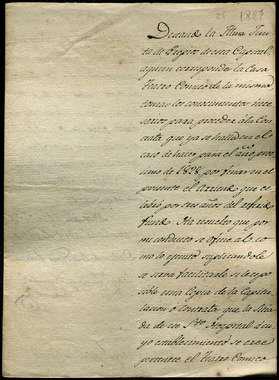 1827
Deseando la Illma Jun
ta de Propios de esta Capital,
á quien corresponde la Casa
Teatro Comico de la misma
tomar los conocimientos ne
cesarios, para proceder á la Con
trata que ya se halla en el
caso de hacer para el año pro
ximo de 1828, por finar en el
presente el Arriendo que ce
lebró por tres años del
Ha resuelto que por
mi conducto se oficie al
lo oportuno suplicandole
se sirva facilitarle si le es po
sible una copia de la Capitu
lacion ó contrata que la
da de su Sto Hospital á cu
yo establecimiento se cree
pertenece el Teatro Comico